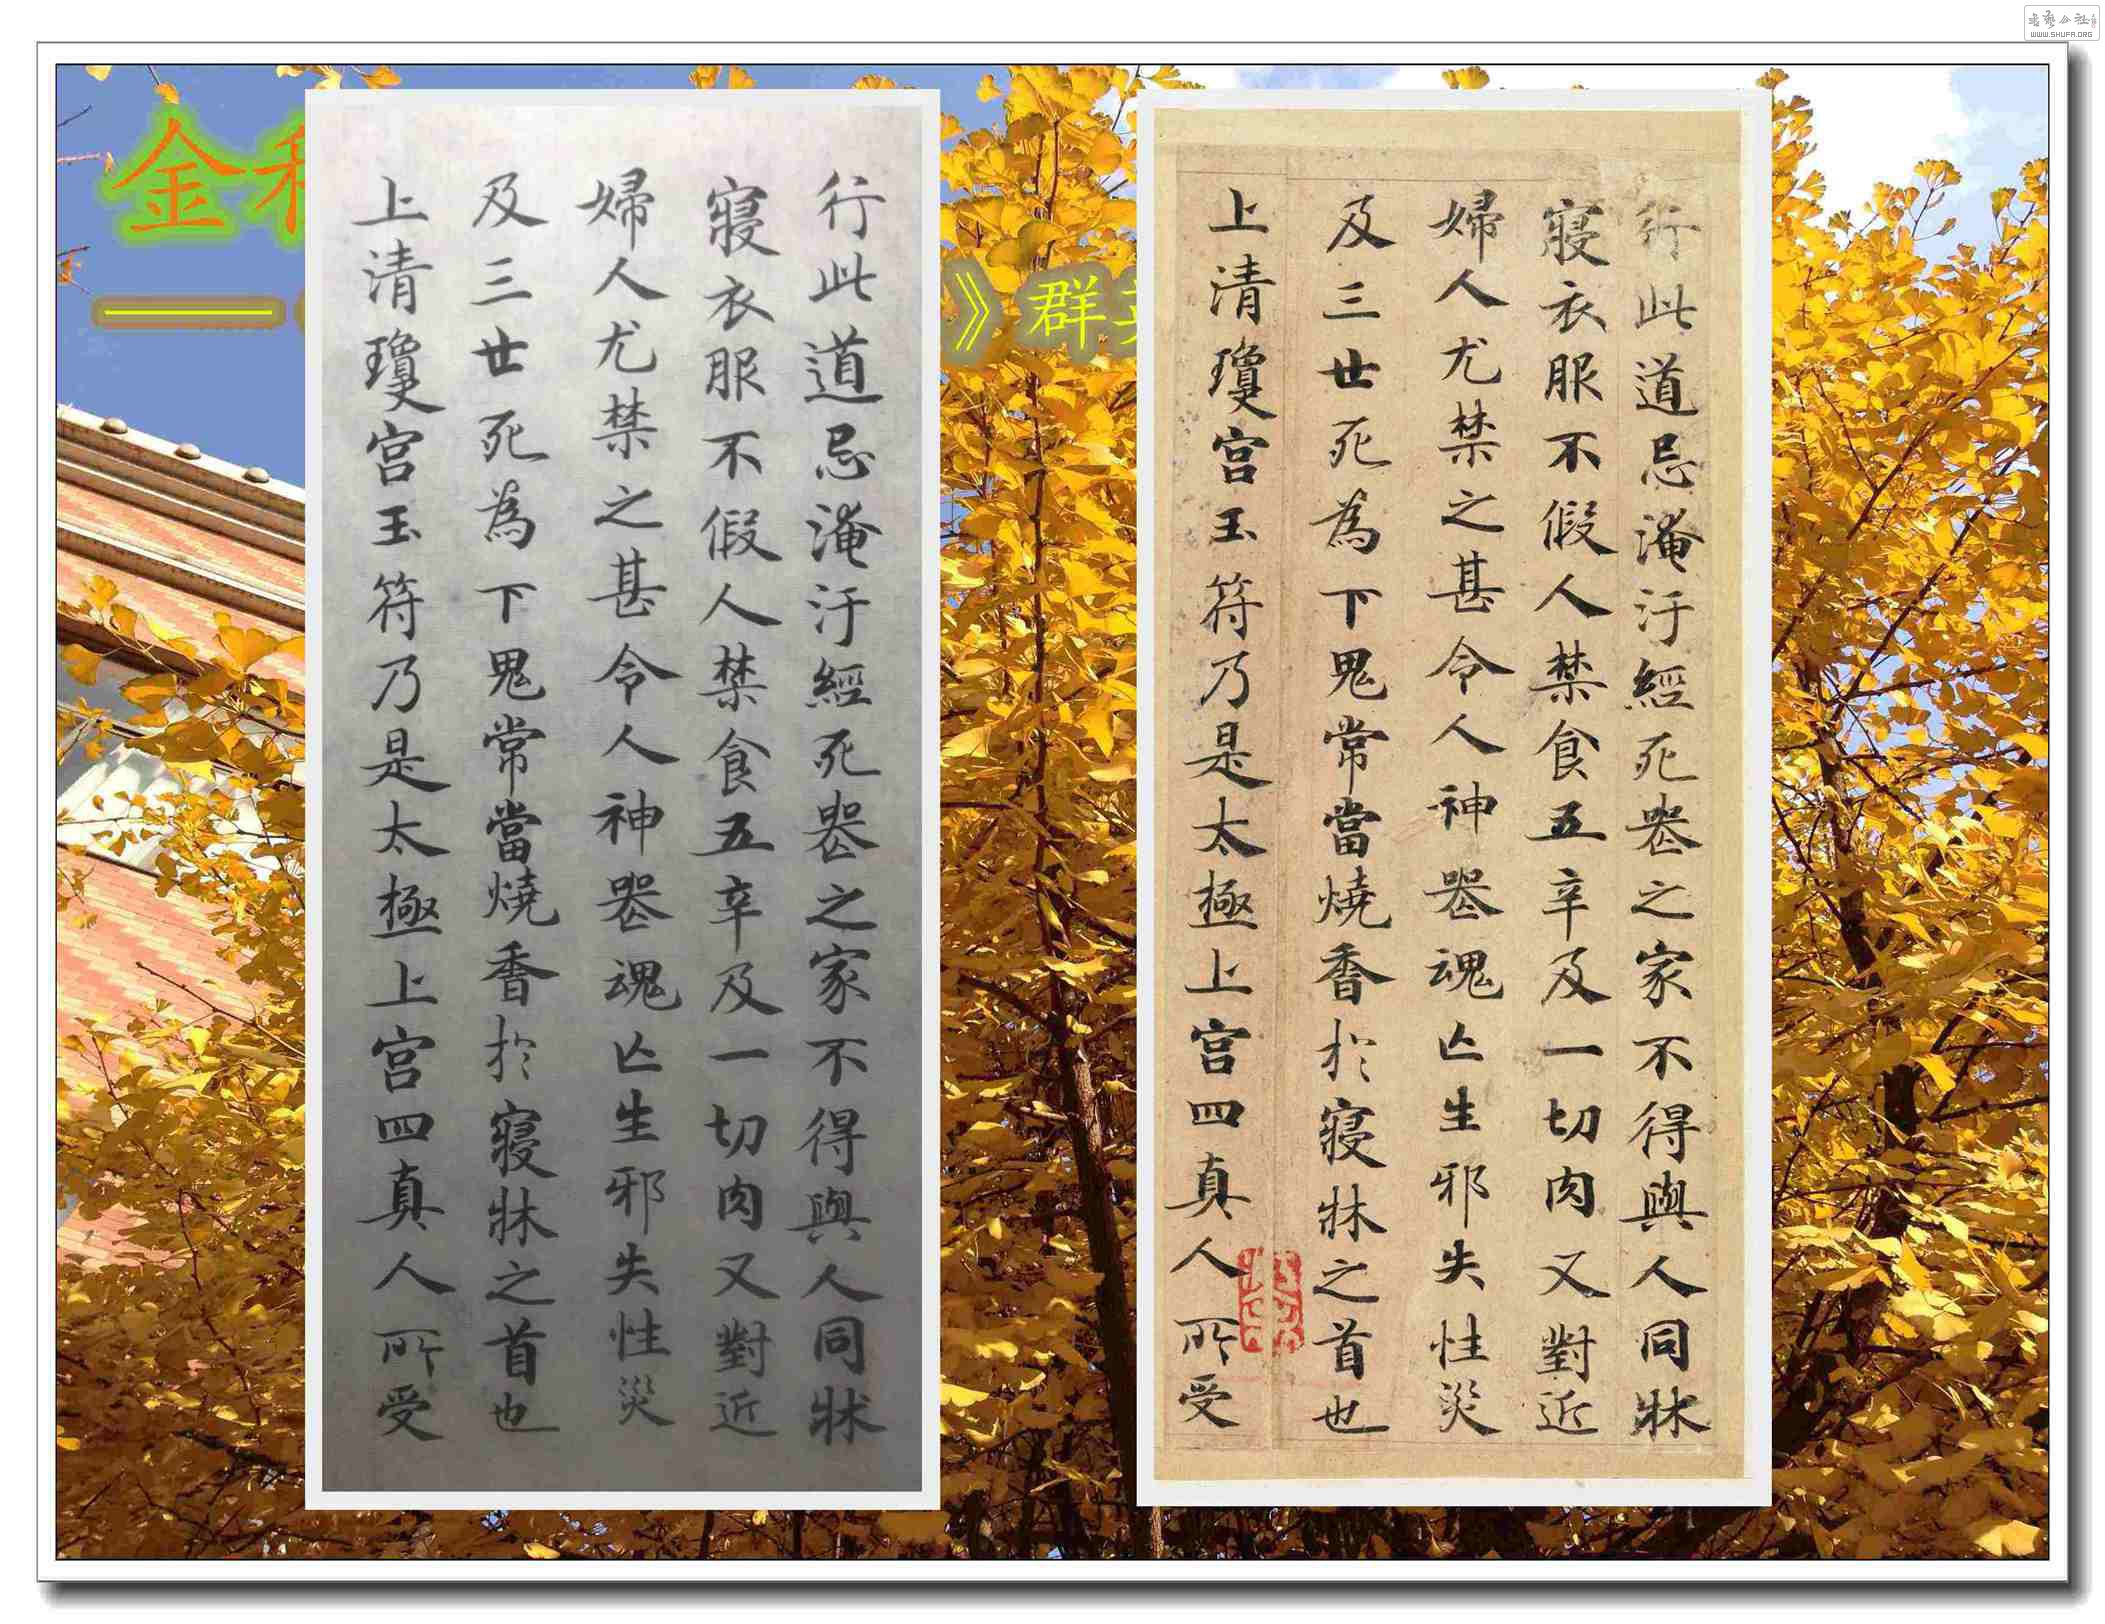 書藝公社
WWW.SHUFA.ORG
金
——
》群
行此道忌淹汙經死喪之家不得與人同牀
寢衣服不假人禁食五辛及一切肉又對近
婦人尤禁之甚令人神喪魂亡生邪失性災
及三世死為下鬼常當燒香於寢牀之首也
上清瓊宮玉符乃是太極上宮四真人所受
行此道忌淹汙經死喪之家不得與人同牀
寢衣服不假人禁食五辛及一切肉又對近
婦人尤禁之甚令人神喪魂亡生邪失性災
及三世死為下鬼常當燒香於寢牀之首也
上清瓊宮玉符乃是太極上宮四真人所受